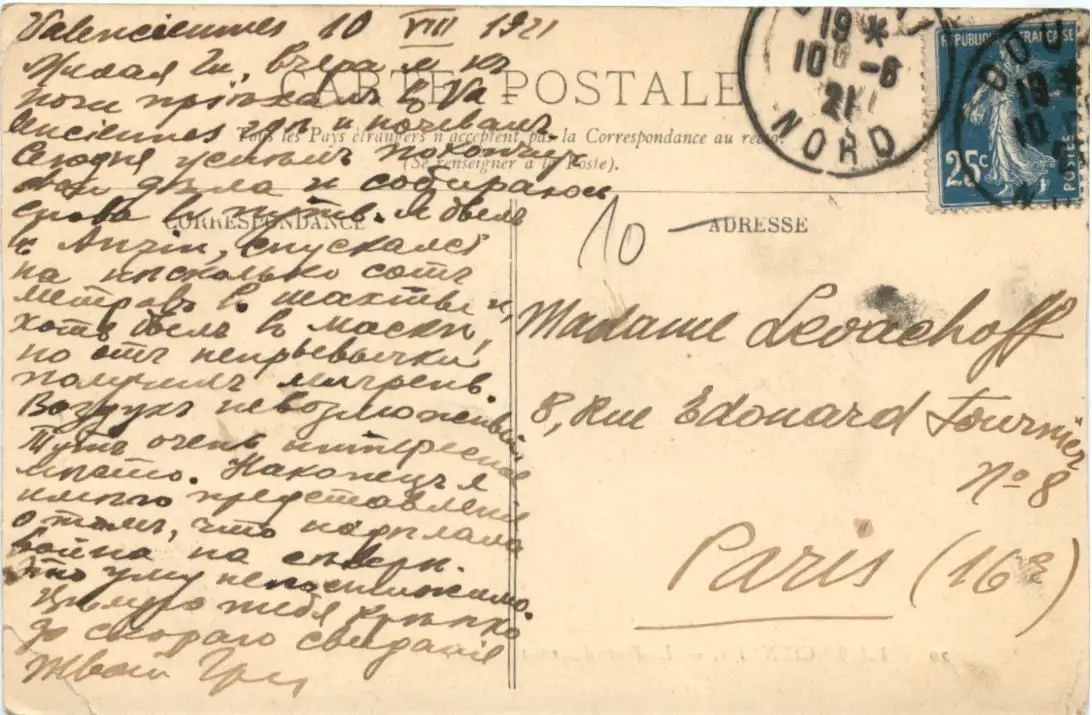 Valenciennes 10 VIII 1921
Милая
вчера я къ
ночи пріѣхалъ в Va
lenciennes гдѣ и ночевалъ
Сегодня
дѣла и собираюсь
снова въ путь. Я былъ
в Анзін, спускался
на нѣсколько сотъ
метровъ в шахты и,
хотя былъ в маскѣ,
но отъ непривычки
получилъ мигрень.
Воздухъ невозможный
Тутъ очень интересное
мѣсто. Наконецъ я
имѣю представленіе
о томъ, что надѣлала
война на сѣверѣ.
Это уму непостижимо.
Цѣлую тебя крѣпко
до скораго свиданія
Твой
CARTE POSTALE
Tous les Pays étrangers n'acceptent pas la Correspondance au recto.
(Se renseigner à la Poste).
CORRESPONDANCE
ADRESSE
10
Madame Levachoff
8, Rue Edouard Fournier
No 8
Paris (16e)
19 *
10 -8
21
NORD
RÉPUBLIQUE FRANÇAISE
25c
POSTES
DOU
19 *
10